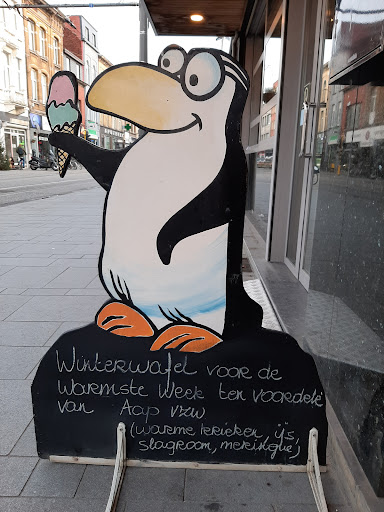 Winterwafel voor de
Warmste Week ten voordele
van Aap vzw
(warme krieken, ijs,
slagroom, meringue)